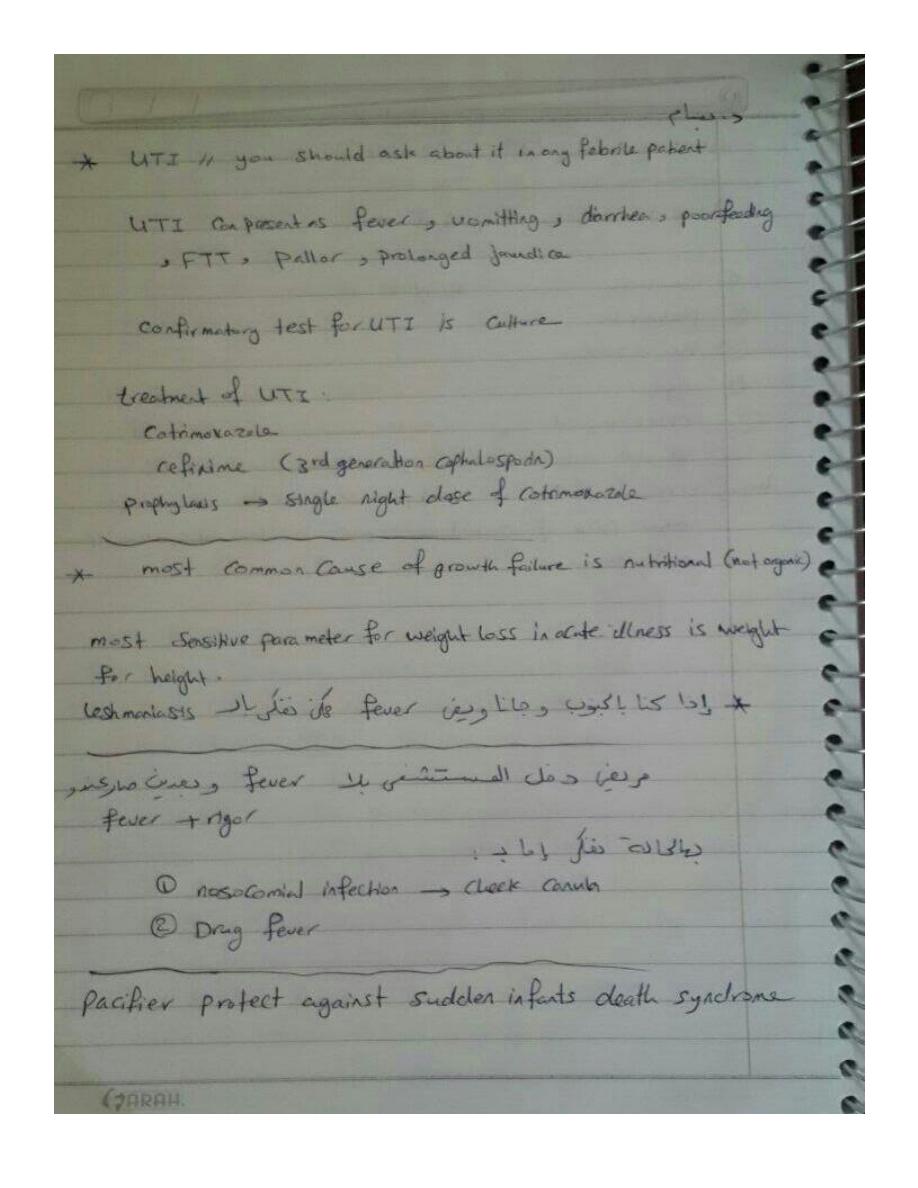 د. بسام
* UTI // you should ask about it in any febrile patient
UTI Can present as fever, vomitting, diarrhea, poor feeding
, FTT, Pallor, prolonged jaundice
Confirmatory test for UTI is Culture
treatment of UTI :
Cotrimoxazole
cefixime (3rd generation cephalosporin)
prophylaxis → single night dose of Cotrimoxazole
* most Common Cause of growth failure is nutritional (not organic)
most Sensitive parameter for weight loss in acute illness is weight
for height.
* إذا كنا بالجنوب وجانا مريض fever ممكن نفكر بال Leshmaniasis
مريض دخل المستشفى بلا fever وبعدين صار عنده
fever + rigor
بهالحالة نفكر إما ب :
① nosocomial infection → Check Canula
② Drug fever
Pacifier protect against sudden infants death syndrome
SARAH.